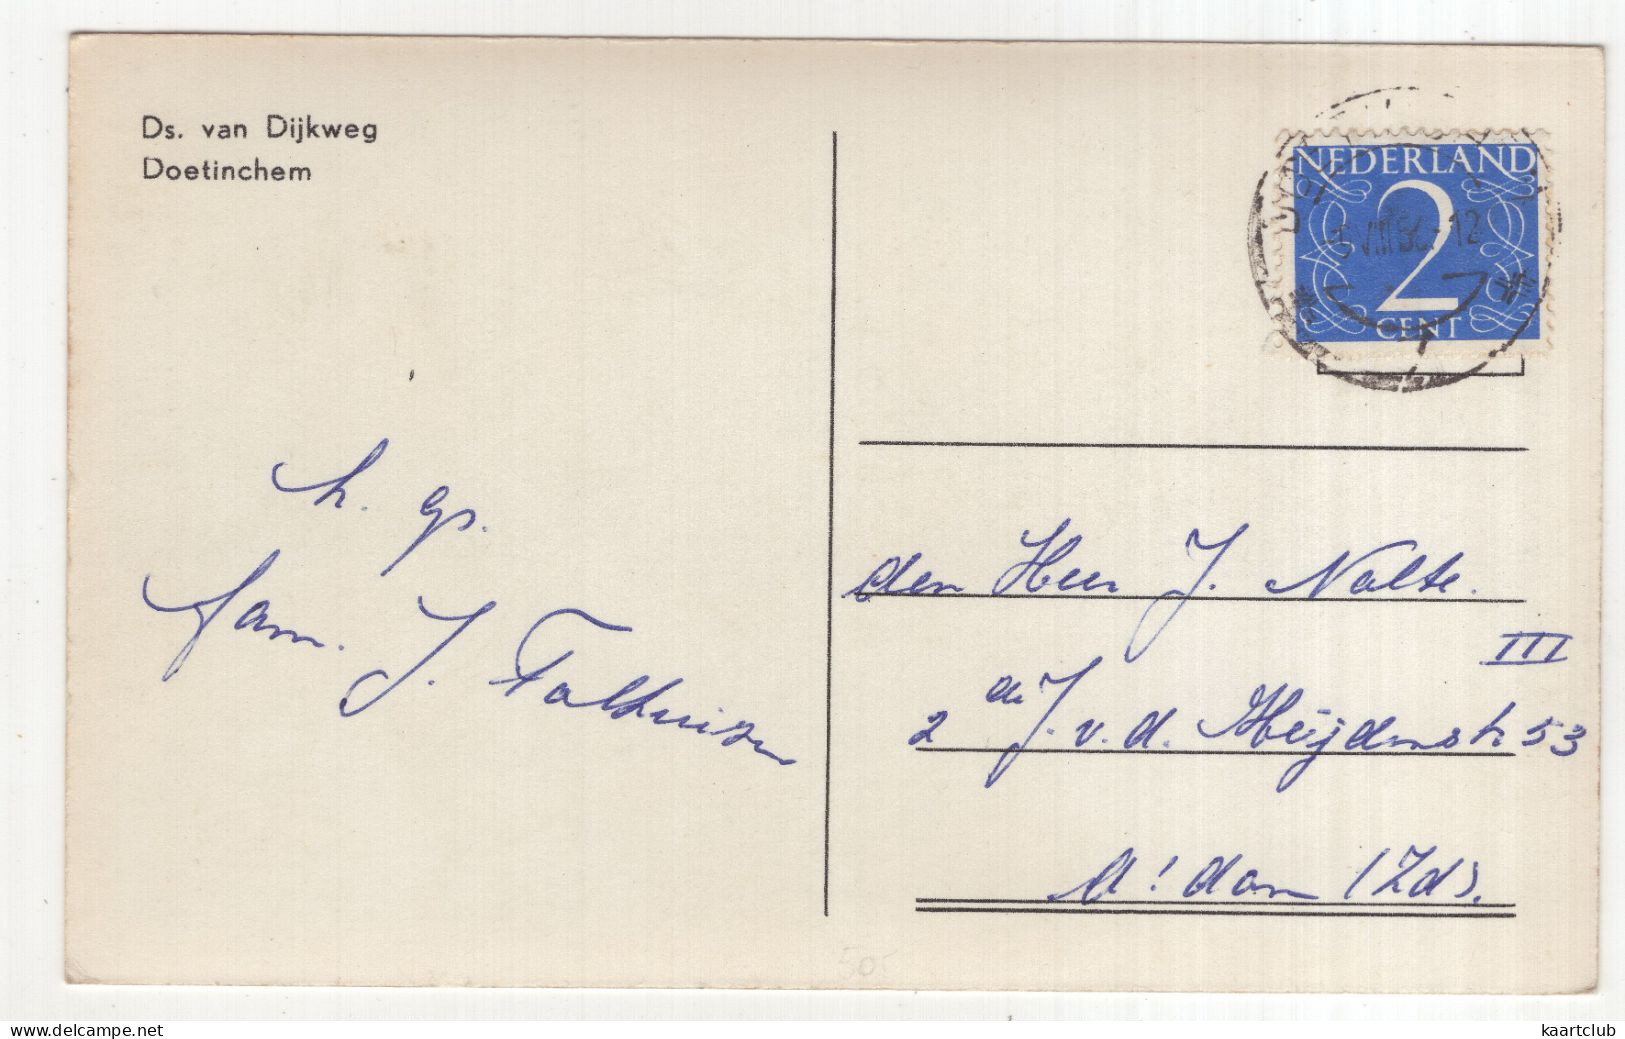 Ds. van Dijkweg
Doetinchem
NEDERLAND
2
CENT
VIII 56.-12
h. gr.
fam. J. Folkhuisen
den Heer J. Nolte.
III
2de J. v. d. Heijdenstr 53
A'dam (Zd).
50
delcampe.net
kaartclub